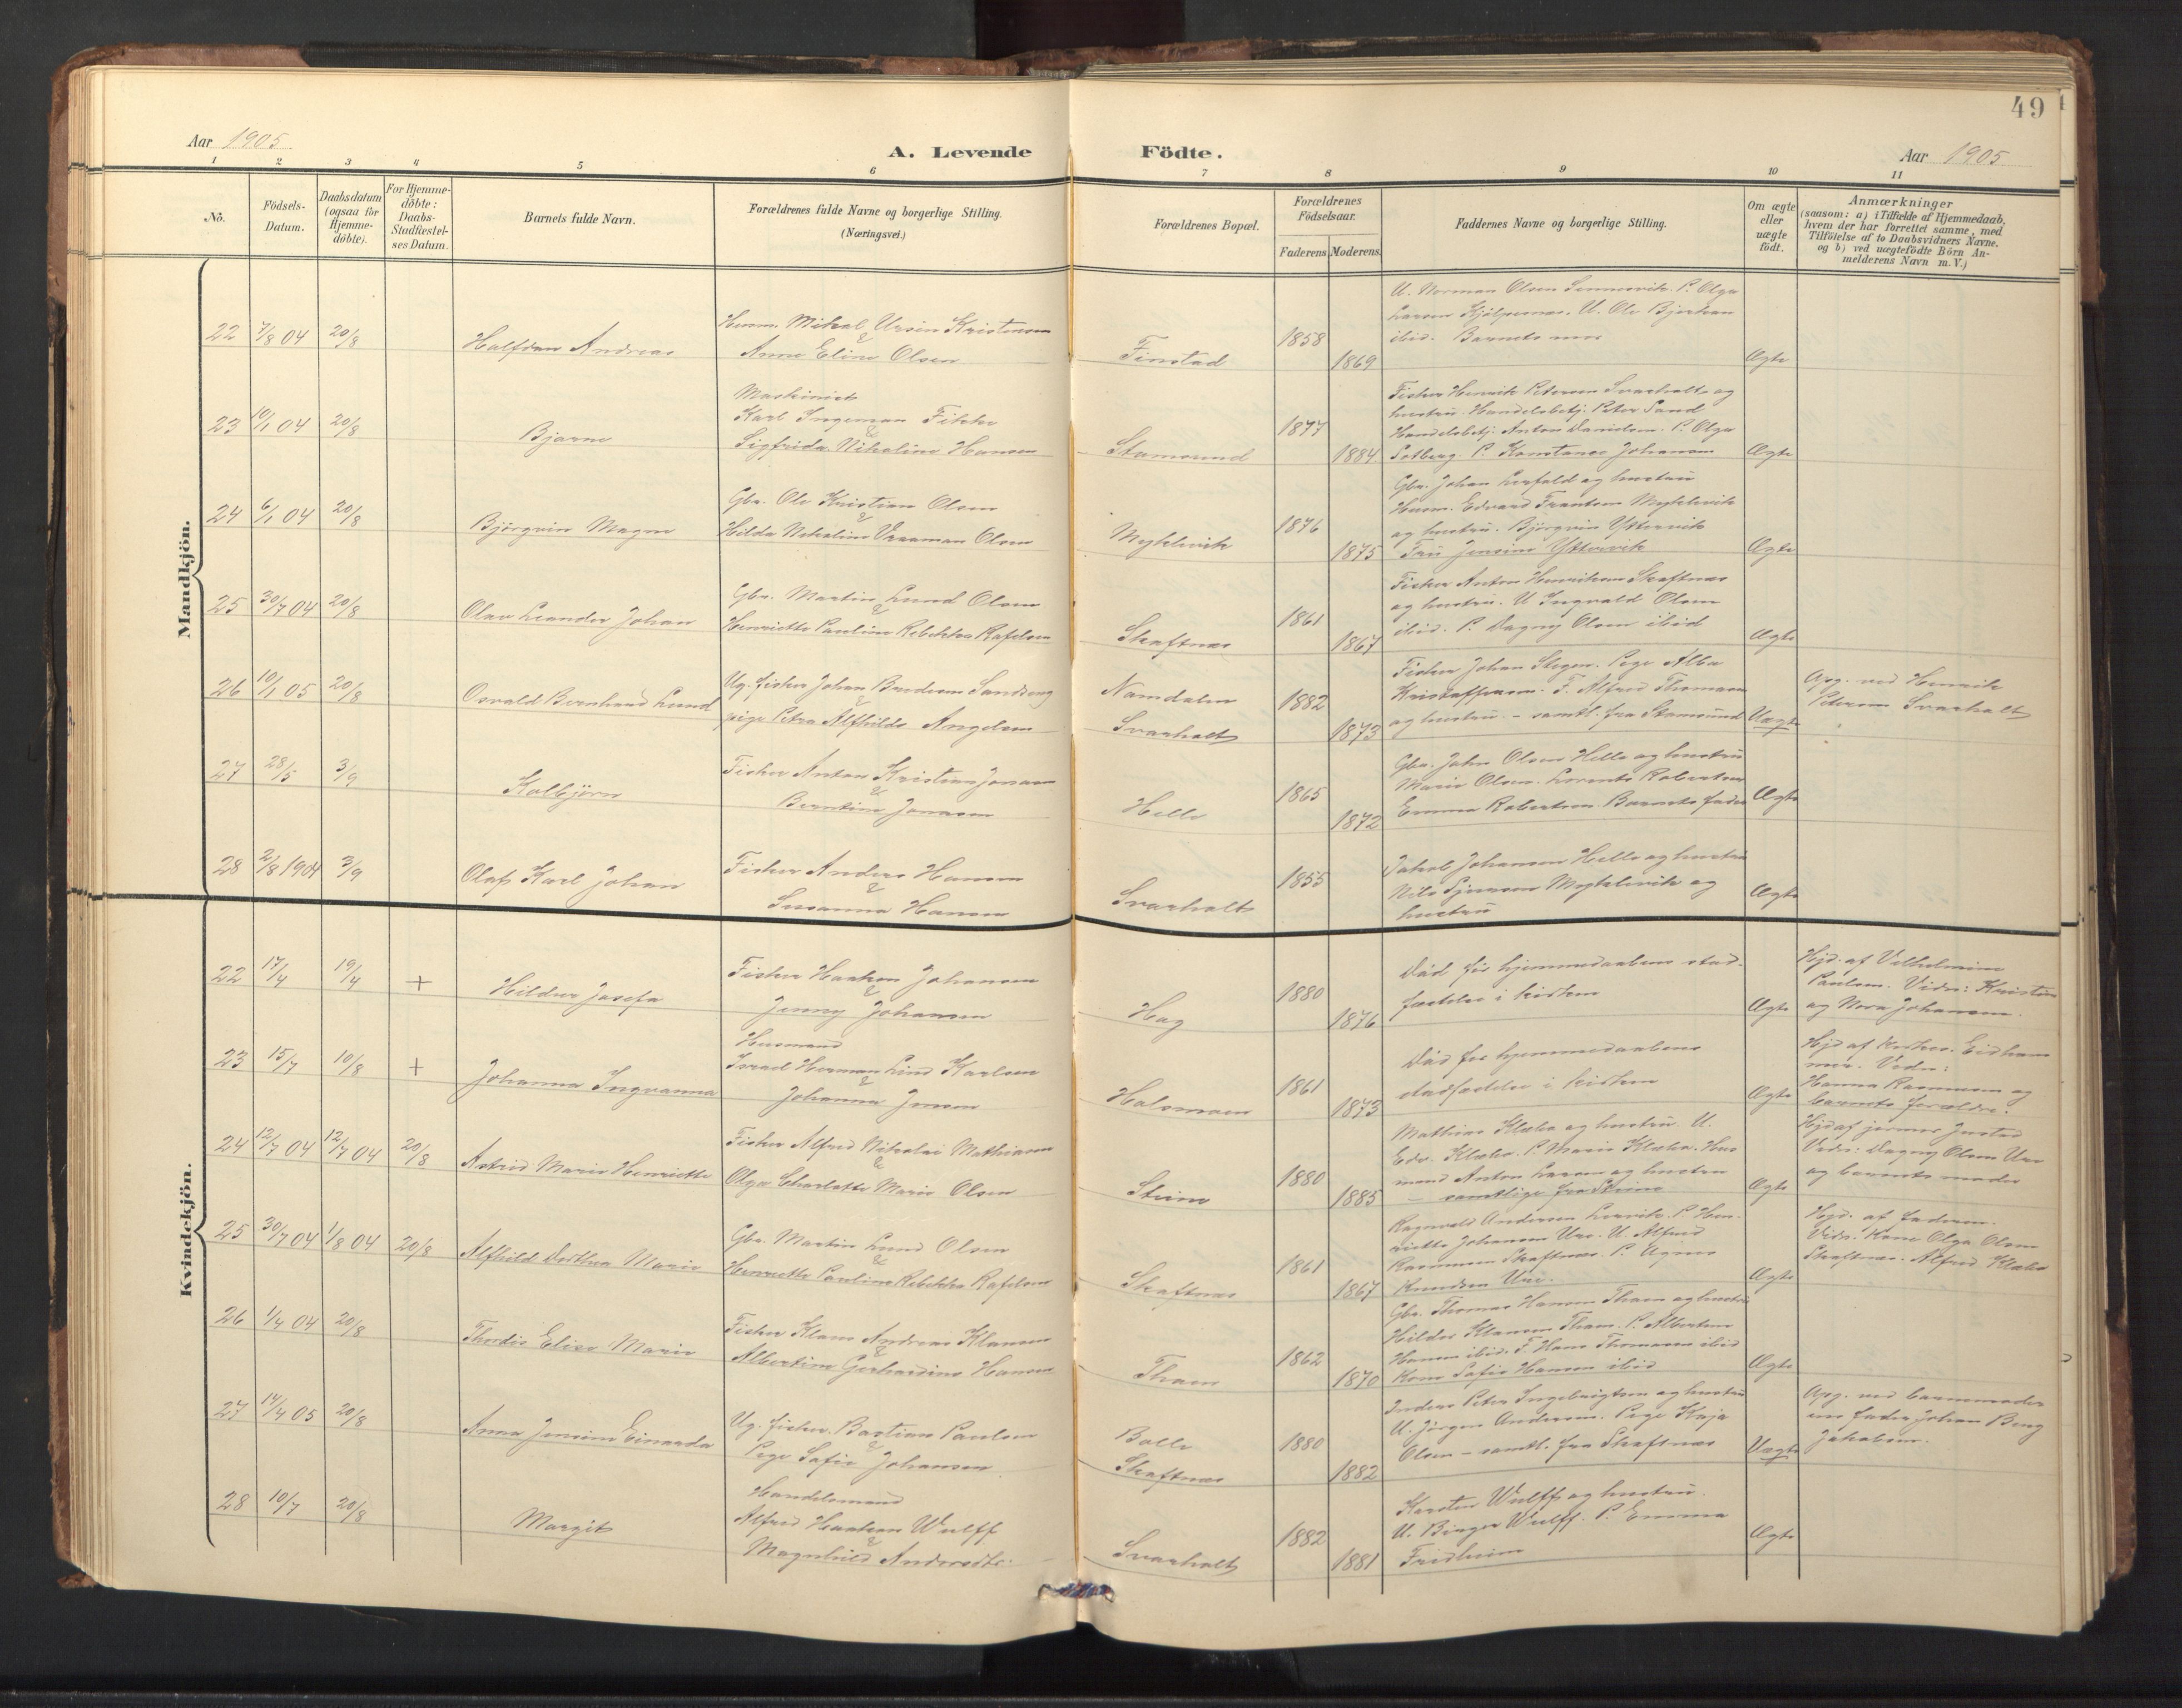 49
Aar 1905.
A. Levende
Födte.
Aar 1905
1 2 3 4 5 6 7 8 9 10 11
No.
Födsels-
Datum.
Daabsdatum
(ogsaa for
Hjemme-
döbte).
For Hjemme-
döbte:
Daabs-
Stadfæstel-
ses Datum.
Barnets fulde Navn.
Forældrenes fulde Navne og borgerlige Stilling.
(Næringsvei.)
Forældrenes Bopæl.
Forældrenes
Födselsaar.
Faderens Moderens.
Faddernes Navne og borgerlige Stilling.
Om ægte
eller
uægte
födt.
Anmærkninger
(saasom: a) i Tilfælde af Hjemmedaab,
hvem der har forrettet samme, med
Tilföielse af to Daabsvidners Navne,
og b) ved uægtefödte Börn An-
melderens Navn m. V.)
Mandkjön.
22 7/8 04 20/8
Halfdan Andreas
Husm. Mikal Ursin Kristensen
&
Anne Eline Olsen
Finstad
1858
1869
U. Norman Olsen Sennesvik. P. Olga
Larsen Hjölpesnes. U. Ole
ibid. Barnets mor
Ægte
23 10/1 04 20/8
Bjarne
Maskinist
Karl Ingeman Fikke
&
Sigfrida Nikoline Hansen
Stamsund
1877
1884.
Fisker Henrik Petersen Svarholt og
hustru. Handelsbetj. Peter Sand
Handelsbetj. Anton Danielsen. P. Olga
Solberg. P. Konstance Johansen
Ægte
24 6/1 04 20/8
Björgvin Magne
Gbr. Ole Kristian Olsen
&
Hilda Nikoline Olsen
Myklevik
1876
1875
Gbr. Johan og hustru
Husm. Edvard Frantsen Myklevik
og hustru. Björgvin Yttervik
Fru Jensine Yttervik
Ægte
25 30/7 04 20/8
Olav Leander Johan
Gbr. Martin Lund Olsen
&
Henriette Pauline Rebekka Rafelsen
Skaftnes
1861
1867
Fisker Anton Henriksen Skaftnes
og hustru. U. Ingvald Olsen
ibid. P. Dagny Olsen ibid
Ægte
26 10/1 05 20/8
Osvald Bernhard Lund
Ug. fisker Johan Berdesen Sandseng
&
pige Petra Alfhilde Angelsen
Namdalen
Svarholt
1882
1873
Fisker Johan Stegen. Pige Alba
Kristoffersen. F. Alfred Thomasen
og hustru - samtl. fra Stamsund
Uægte
Opg. ved Henrik
Petersen Svarholt
27 28/5 3/9
Kolbjörn
Fisker Anton Kristian Jonasen
&
Berntine Jonasen
Helle
1865
1872
Gbr. John Olsen Helle og hustru
Marie Olsen. Lorents Robertsen
Emma Robertsen. Barnets fader
Ægte
28 2/8 1904 3/9
Olaf Karl Johan
Fisker Anders Hansen
&
Susanna Hansen
Svarholt
1855
Jakob Johansen Helle og hustru
Nils Myklevik og
hustru
Ægte
Kvindekjön.
22 17/4 19/4 +
Hildur Josefa
Fisker Haakon Johansen
&
Jenny Johansen
Hag
1880
1876
Död för hjemmedaabens stad-
fæstelse i kirken
Ægte
Hjd. af Vilhelmine
Paulsen. Vidn: Kristine
og Nora Johansen.
23 15/7 10/8 +
Johanna Ingvanna
Husmand
Israel Herman Lind Karlsen
&
Johanna Jensen
Holsmoen
1861
1873
Död for hjemmedaabens
stadfæstelse i kirken
Ægte
Hjd af Eidham
mer. Vidn:
Hanna Rasmussen og
barnets forældre.
24 12/7 04 12/7 04 20/8
Astrid Marie Henriette
Fisker Alfred Nikolai Mathiasen
&
Olga Charlotte Marie Olsen
Steine
1880
1885
Mathias Klæbo og hustru. U.
Edv. Klæbo. P. Marie Klæbo. Hus
mand Anton Larsen og hustru
- samtlige fra Steine
Ægte
Hjd af jormor Justad
Vidn: Dagny Olsen Ure
og barnets moder
25 30/7 04 1/8 04 20/8
Alfhild Dorthea Marie
Gbr. Martin Lund Olsen
&
Henriette Pauline Rebekka Rafelsen
Skaftnes
1861
1867
Ragnvald Andersen Lervik. P. Hen-
riette Johansen Ure. U. Alfred
Rasmussen Skaftnes. P. Agnes
Knudsen Ure.
Ægte
Hjd. af faderen.
Vidn: Kone Olga Olsen
Skaftnes. Alfred Klæbo
26 1/4 04 20/8
Thordis Elise Marie
Fisker Klaus Andreas Klausen
&
Albertine Gerhardine Hansen
Tham
1862
1870
Gbr. Thomas Hansen Tham og hustru
Hilda Klausen Tham. P. Albertine
Hansen ibid. F. Hans Thomasen ibid
Kone Sofie Hansen ibid
Ægte
27 14/4 05 20/8
Anna Jensine Einarda
Ug. fisker. Bastian Paulsen
&
Pige Sofie Johansen
Balle
Skaftnes
1880
1882
Inders Peter Ingebrigtsen og hustru
U. Jörgen Andersen. Pige Kaja
Olsen - samtl. fra Skaftnes
Uægte
Opg. ved barnemoder
ens fader Johan Berg
Jakobsen.
28 10/7 20/8
Margit
Handelsmand
Alfred Haakon Wulff
&
Magnhild Andersdtr.
Svarholt
1882
1881
Karsten Wulff og hustru.
U. Birger Wulff. P. Emma
Fridheim
Ægte